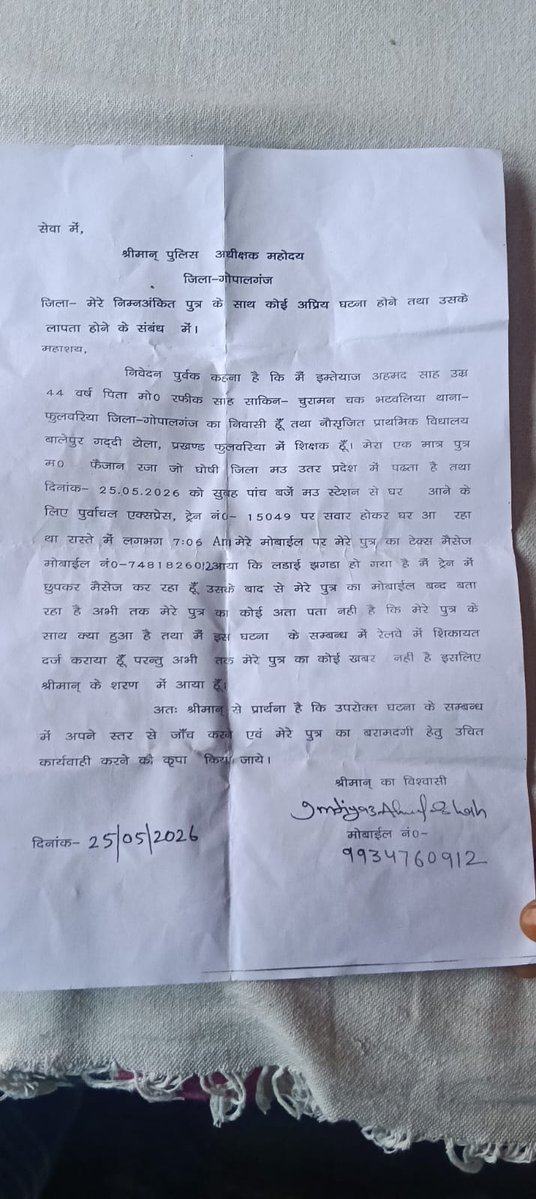 सेवा में,
श्रीमान् पुलिस अधीक्षक महोदय
जिला-गोपालगंज
जिला- मेरे निम्नअंकित पुत्र के साथ कोई अप्रिय घटना होने तथा उसके
लापता होने के संबंध में।
महाशय,
निवेदन पुर्वक कहना है कि मैं इम्तेयाज अहमद साह उम्र
44 वर्ष पिता मो0 रफीक साह साकिन- चुरामन चक भटवलिया थाना-
फुलवरिया जिला-गोपालगंज का निवासी हूँ तथा नौसृजित प्राथमिक विघालय
बालेपुर गद्दी टोला, प्रखण्ड फुलवरिया में शिक्षक हूँ। मेरा एक मात्र पुत्र
म0 फैजान रजा जो घोषी जिला मउ उतर प्रदेश में पढता है तथा
दिनांक- 25.05.2026 को सुबह पांच बजें मउ स्टेशन से घर आने के
लिए पुर्वाचल एक्सप्रेस, ट्रेन नं0- 15049 पर सवार होकर घर आ रहा
था रास्ते में लगभग 7:06 Am मेरे मोबाईल पर मेरे पुत्र का टेक्स मैसेज
मोबाईल नं0-7481826012आया कि लडाई झगडा हो गया है मैं ट्रेन में
छुपकर मैसेज कर रहा हूँ उसके बाद से मेरे पुत्र का मोबाईल बन्द बता
रहा है अभी तक मेरे पुत्र का कोई अता पता नही है कि मेरे पुत्र के
साथ क्या हुआ है तथा मैं इस घटना के सम्बन्ध में रेलवे में शिकायत
दर्ज कराया हूँ परन्तु अभी तक मेरे पुत्र का कोई खबर नही है इसलिए
श्रीमान् के शरण में आया हूँ।
अतः श्रीमान् से प्रार्थना है कि उपरोक्त घटना के सम्बन्ध
में अपने स्तर से जाँच करने एवं मेरे पुत्र का बरामदगी हेतु उचित
कार्यवाही करने की कृपा किया जाये।
श्रीमान् का विश्वासी
मोबाईल नं0-
दिनांक- 25/05/2026
9934760912